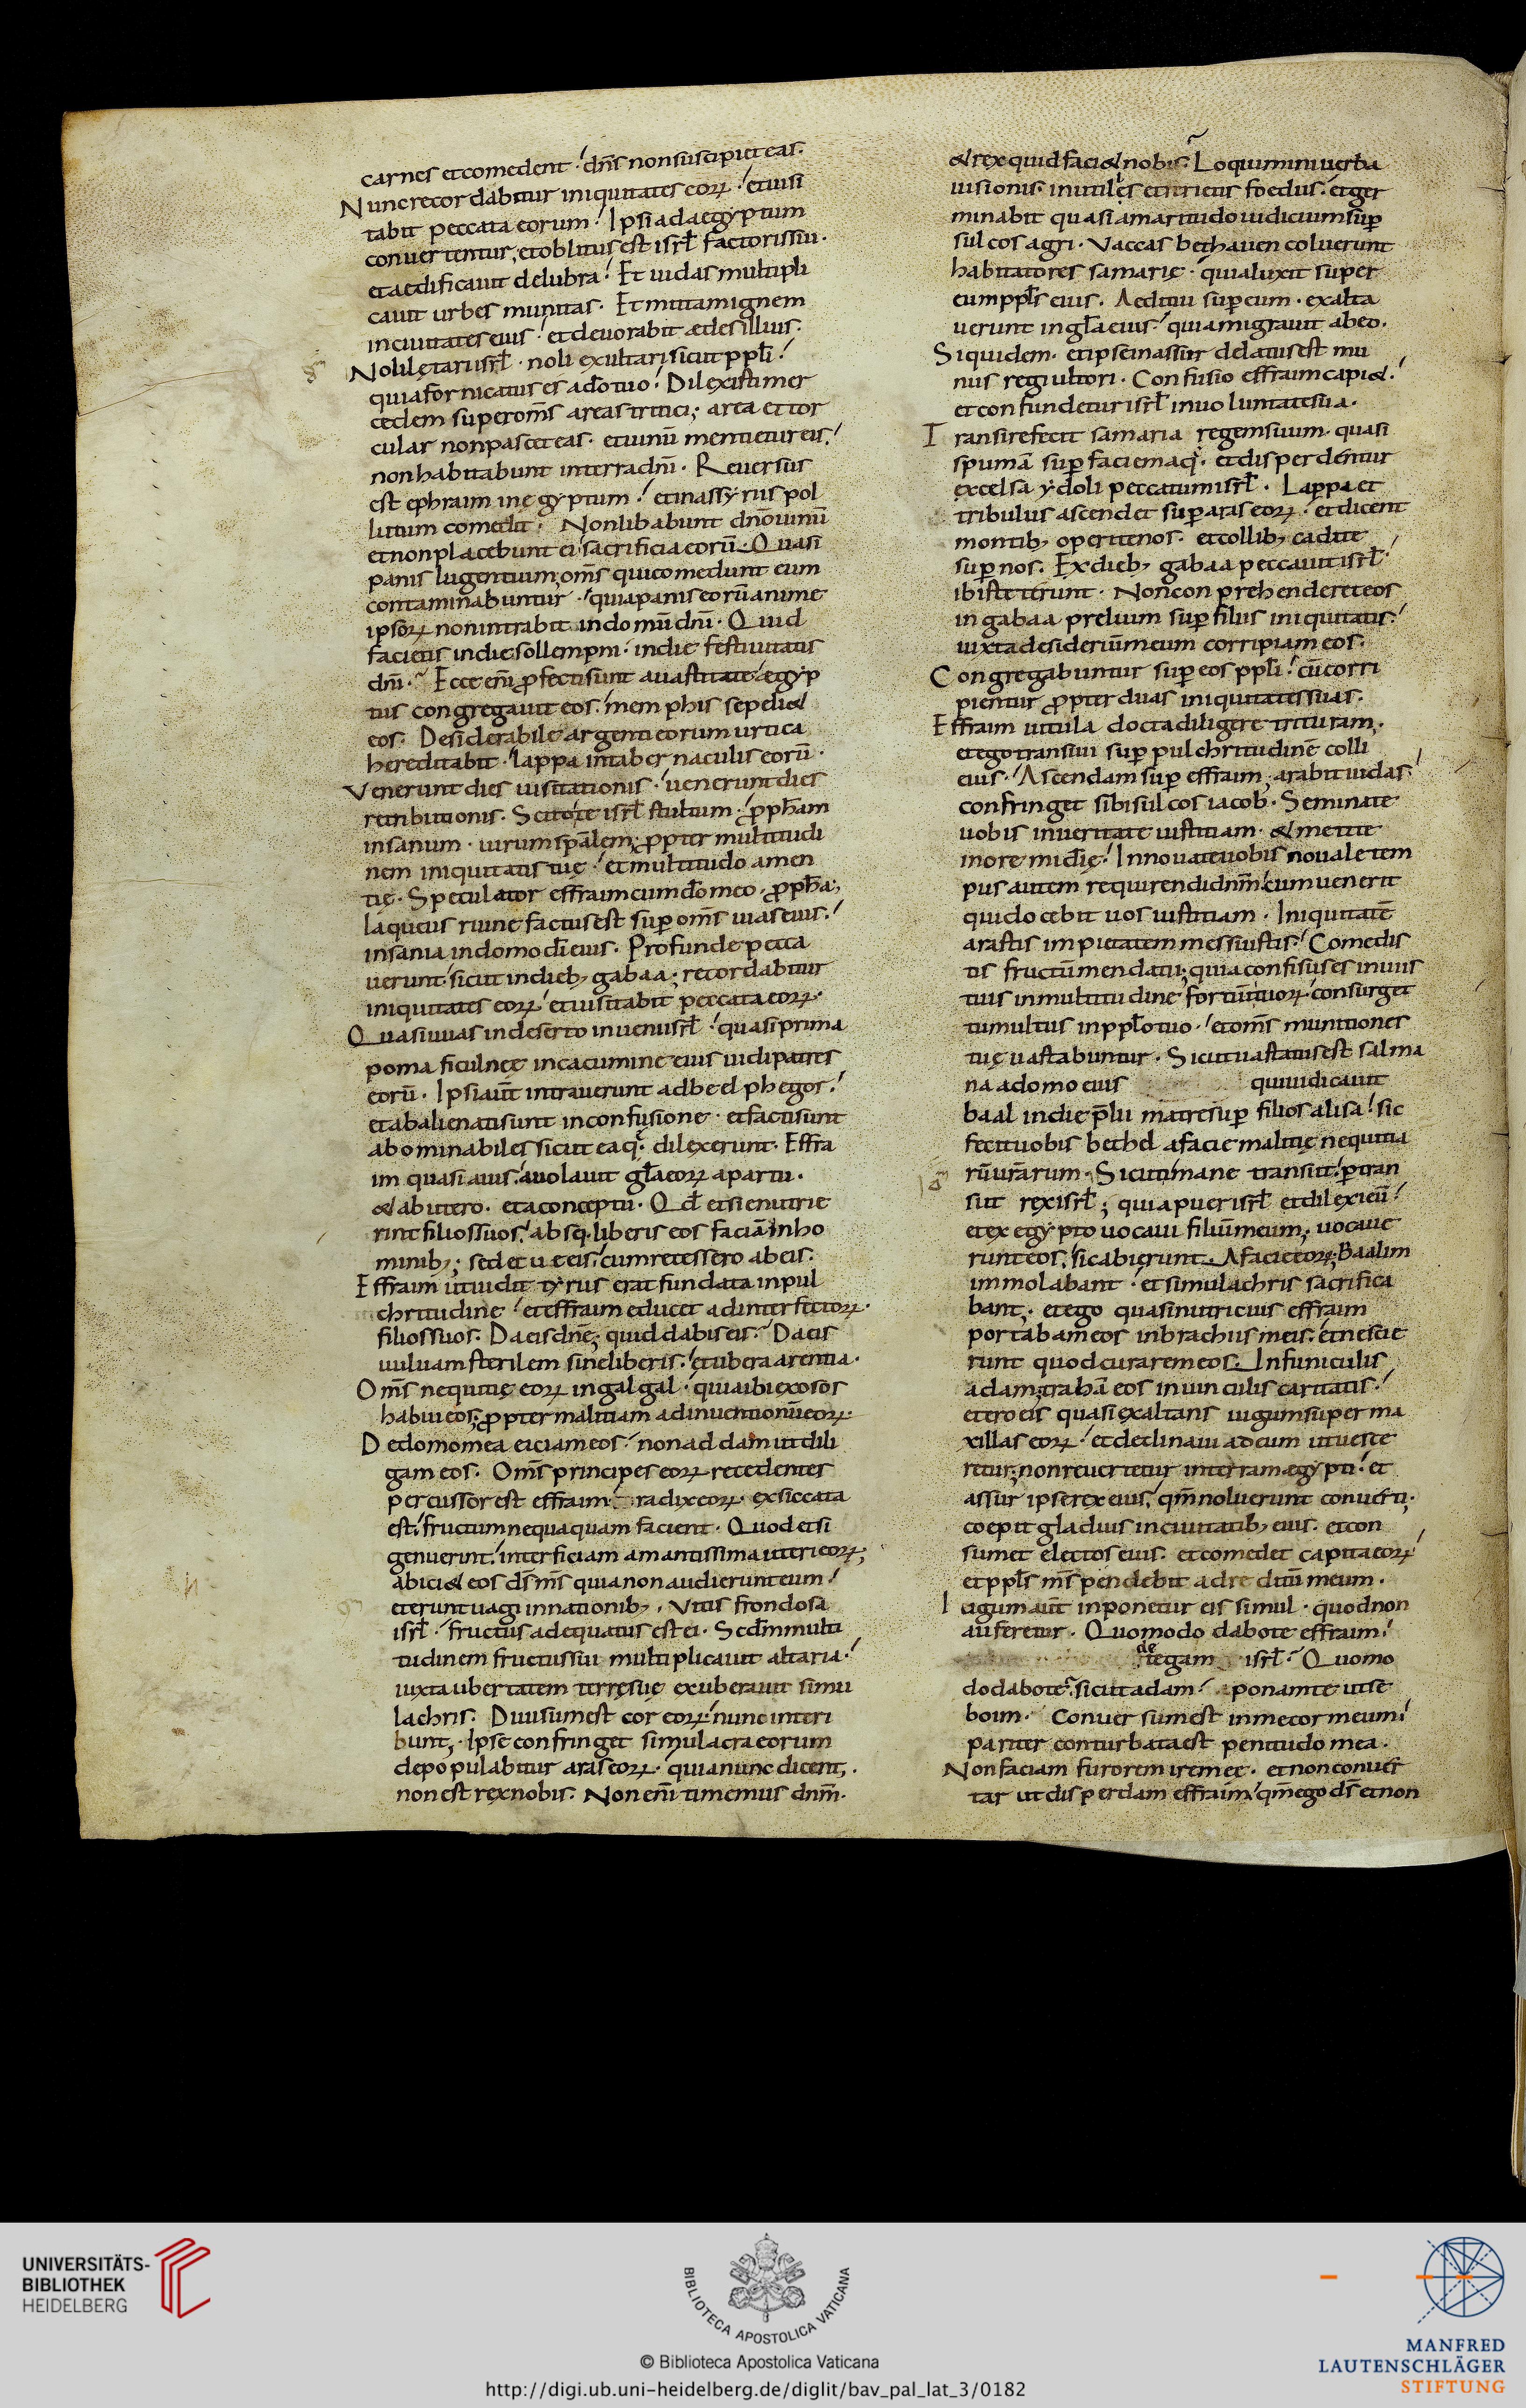 carnes et comedent · dn̄s non suscipiet eas.
Nunc recordabitur iniquitates eoꝝ · et uisi
tabit peccata eorum · Ipsi ad aegyptum
conuertentur, et oblitus est isrl̄ factoris sui ·
et aedificauit delubra · Et iudas multipli
cauit urbes munitas · Et mittam ignem
in ciuitates eius · et deuorabit aedes illius ·
Noli lętari isrl̄ · noli exultari sicut pp̄li ·
quia fornicatus es a dō tuo · Dilexisti mer
cedem super om̄s areas tritici; area et tor
cular non pascet eas · et uinū mentietur eis ·
non habitabunt in terra dn̄i · Reuersus
est ephraim in ęgyptum · et in assyrus pol
lutum comedit · Non libabunt dn̄o uinū
et non placebunt ei sacrificia eorū · Quasi
panis lugentium; om̄s qui comedunt eum
contaminabuntur · quia panis eorū anime
ipsoꝝ non intrabit in domū dn̄i · Quid
facietis in die sollempni · in die festiuitatis
dn̄i · Ecce eni̅ ꝓfecti sunt a uastitate · ęgyp
tus congregauit eos · memphis sepeliet
eos · Desiderabile argenti eorum urtica
hereditabit · lappa in tabernaculis eorū ·
Venerunt dies uisitationis · uenerunt dies
retributionis · Scitote isrl̄ stultum · ꝓph̄am
insanum · uirum sp̄alem; ꝓpter multitudi
nem iniquitatis tuę · et multitudo amen
tię · Speculator effraim cum dō meo · ꝓph̄a;
laqueus ruine factus est sup̄ om̄s uias eius ·
insania in domo dī eius · Profunde pecca
uerunt · sicut in dieb; gabaa; recordabitur
iniquitates eoꝝ · et uisitabit peccata eoꝝ ·
Quasi uuas in deserto inueni isrl̄ · quasi prima
poma ficulnee in cacumine eius uidi patres
eorū · Ipsi aūt intrauerunt ad beelphegor ·
et abalienati sunt in confusione · et facti sunt
abominabiles sicut ea q̨ dilexerunt · Effra
im quasi auis · auolauit gl̄a eoꝝ a partu ·
& ab utero · et a conceptu · Qd̄ et si enutrie
rint filios suos · absq; liberis eos faciā in ho
minib;; sed et uę eis · cum recessero ab eis ·
Effraim ut uidit tyrus erat fundata in pul
chritudine · et effraim educet ad interfectoꝝ ·
filios suos · Da eis dn̄e; quid dabis eis · Da eis
uuluam sterilem sine liberis · et ubera arentia ·
Om̄s nequitię eoꝝ in galgal · quia ibi exosos
habui eos; ꝓpter malitiam adinuentionū eoꝝ ·
De domo mea eiciam eos · non addam ut dili
gam eos · Om̄s principes eoꝝ recedentes
percussor est effraim · radix eoꝝ · exsiccata
est · fructum nequaquam facient · Quod et si
genuerint · interficiam amantissima uteri eoꝝ;
abici& eos ds̄ ms̄ quia non audierunt eum ·
et erunt uagi in nationib; · Vitis frondosa
isrl̄ · fructus adequatus est ei · Scd̄m multi
tudinem fructus sui multiplicauit altaria ·
iuxta ubertatem terrę suę exuberauit simu
lachris · Diuisum est cor eoꝝ · nunc interi
bunt; · Ipse confringet simulacra eorum
depopulabitur aras eoꝝ · quia nunc dicent; ·
non est rex nobis · Non eni̅ timemus dn̄m ·
& rex quid faci& nobis · Loquimini uerba
uisionis · inutiles et ferietis foedus · et ger
minabit quasi amaritudo iudicium sup̄
sulcos agri · Vaccas bethauen coluerunt
habitatores samarię · quia luxit super
eum pp̄ls eius · Aeditui sup̄ eum · exalta
uerunt in gl̄a eius · quia migrauit ab eo ·
Siquidem · et ipse in assur delatus est mu
nus regi ultori · Confusio effraim capi& ·
et confundetur isrl̄ in uoluntate sua ·
Transire fecit samaria regem suum · quasi
spumā sup̄ faciem aq̨ · et disperdentur
excelsa ydoli peccatum isrl̄ · Lappa et
tribulus ascendet sup̄ aras eoꝝ · et dicent
montib; operite nos · et collib; cadite
sup̄ nos · Ex dieb; gabaa peccauit isrl̄ ·
ibi steterunt · Non conprehenderet eos
in gabaa prelium sup̄ filius iniquitatis ·
iuxta desideriū meum corripiam eos ·
Congregabuntur sup̄ eos pp̄li · cū corri
pientur ꝓpter duas iniquitates suas ·
Effraim uitula docta diligere trituram ·
et ego transiui sup̄ pulchritudinē colli
eius · Ascendam sup̄ effraim; arabit iudas ·
confringet sibi sulcos iacob · Seminate
uobis in ueritate iustitiam · & metite
in ore mīdię · Innouate uobis nouale tem
pus autem requirendi dn̄m · cum uenerit
qui docebit uos iustitiam · Iniquitatē
arastis impietatem messuistis · Comedis
tis fructū mendatii; quia confisus es in uiis
tuis in multitudine fortiū tuoꝝ · consurget
tumultus in pp̄lo tuo · et om̄s munitiones
tuę uastabuntur · Sicut uastatus est salma
na a domo eius qui iudicauit
baal in die p̄lii matre sup̄ filios alisa · sic
fecit uobis bethel a facie malitię nequitia
rū ur̄arum · Sicuti mane transiit · ꝑtran
siit rex isrl̄; quia puer isrl̄ et dilexi eū ·
et ex egypto uocaui filiū meum; uocaue
runt eos · sic abierunt · A facie eoꝝ; Baalim
immolabant · et simulachris sacrifica
bant; · et ego quasi nutricius effraim
portabam eos in brachiis meis · et nescie
runt quod curarem eos · In funiculis
adam; trahā eos in uinculis caritatis ·
et ero eis quasi exaltans iugum super ma
xillas eoꝝ · et declinaui ad eum ut uesce
retur; non reuertetur in terram ęgypti · et
assur ipse rex eius · qm̄ noluerunt conuerti ·
coepit gladius in ciuitatib; eius · et con
sumet electos eius · et comedet capita eoꝝ
et pp̄ls ms̄ pendebit ad reditū meum ·
Iugum aūt inponetur eis simul · quod non
auferetur · Quomodo dabo te effraim ·
de
tegam isrl̄ · Quomo
do dabo te · sicut adam · ponam te ut se
boim · Conuersum est in me cor meum ·
pariter conturbata est penitudo mea ·
Non faciam furorem irę meę · et non conuer
tar ut disperdam effraim · qm̄ ego ds̄ et non
UNIVERSITÄTS-
BIBLIOTHEK
HEIDELBERG
BIBLIOTECA APOSTOLICA VATICANA
© Biblioteca Apostolica Vaticana
http://digi.ub.uni-heidelberg.de/diglit/bav_pal_lat_3/0182
MANFRED
LAUTENSCHLÄGER
STIFTUNG